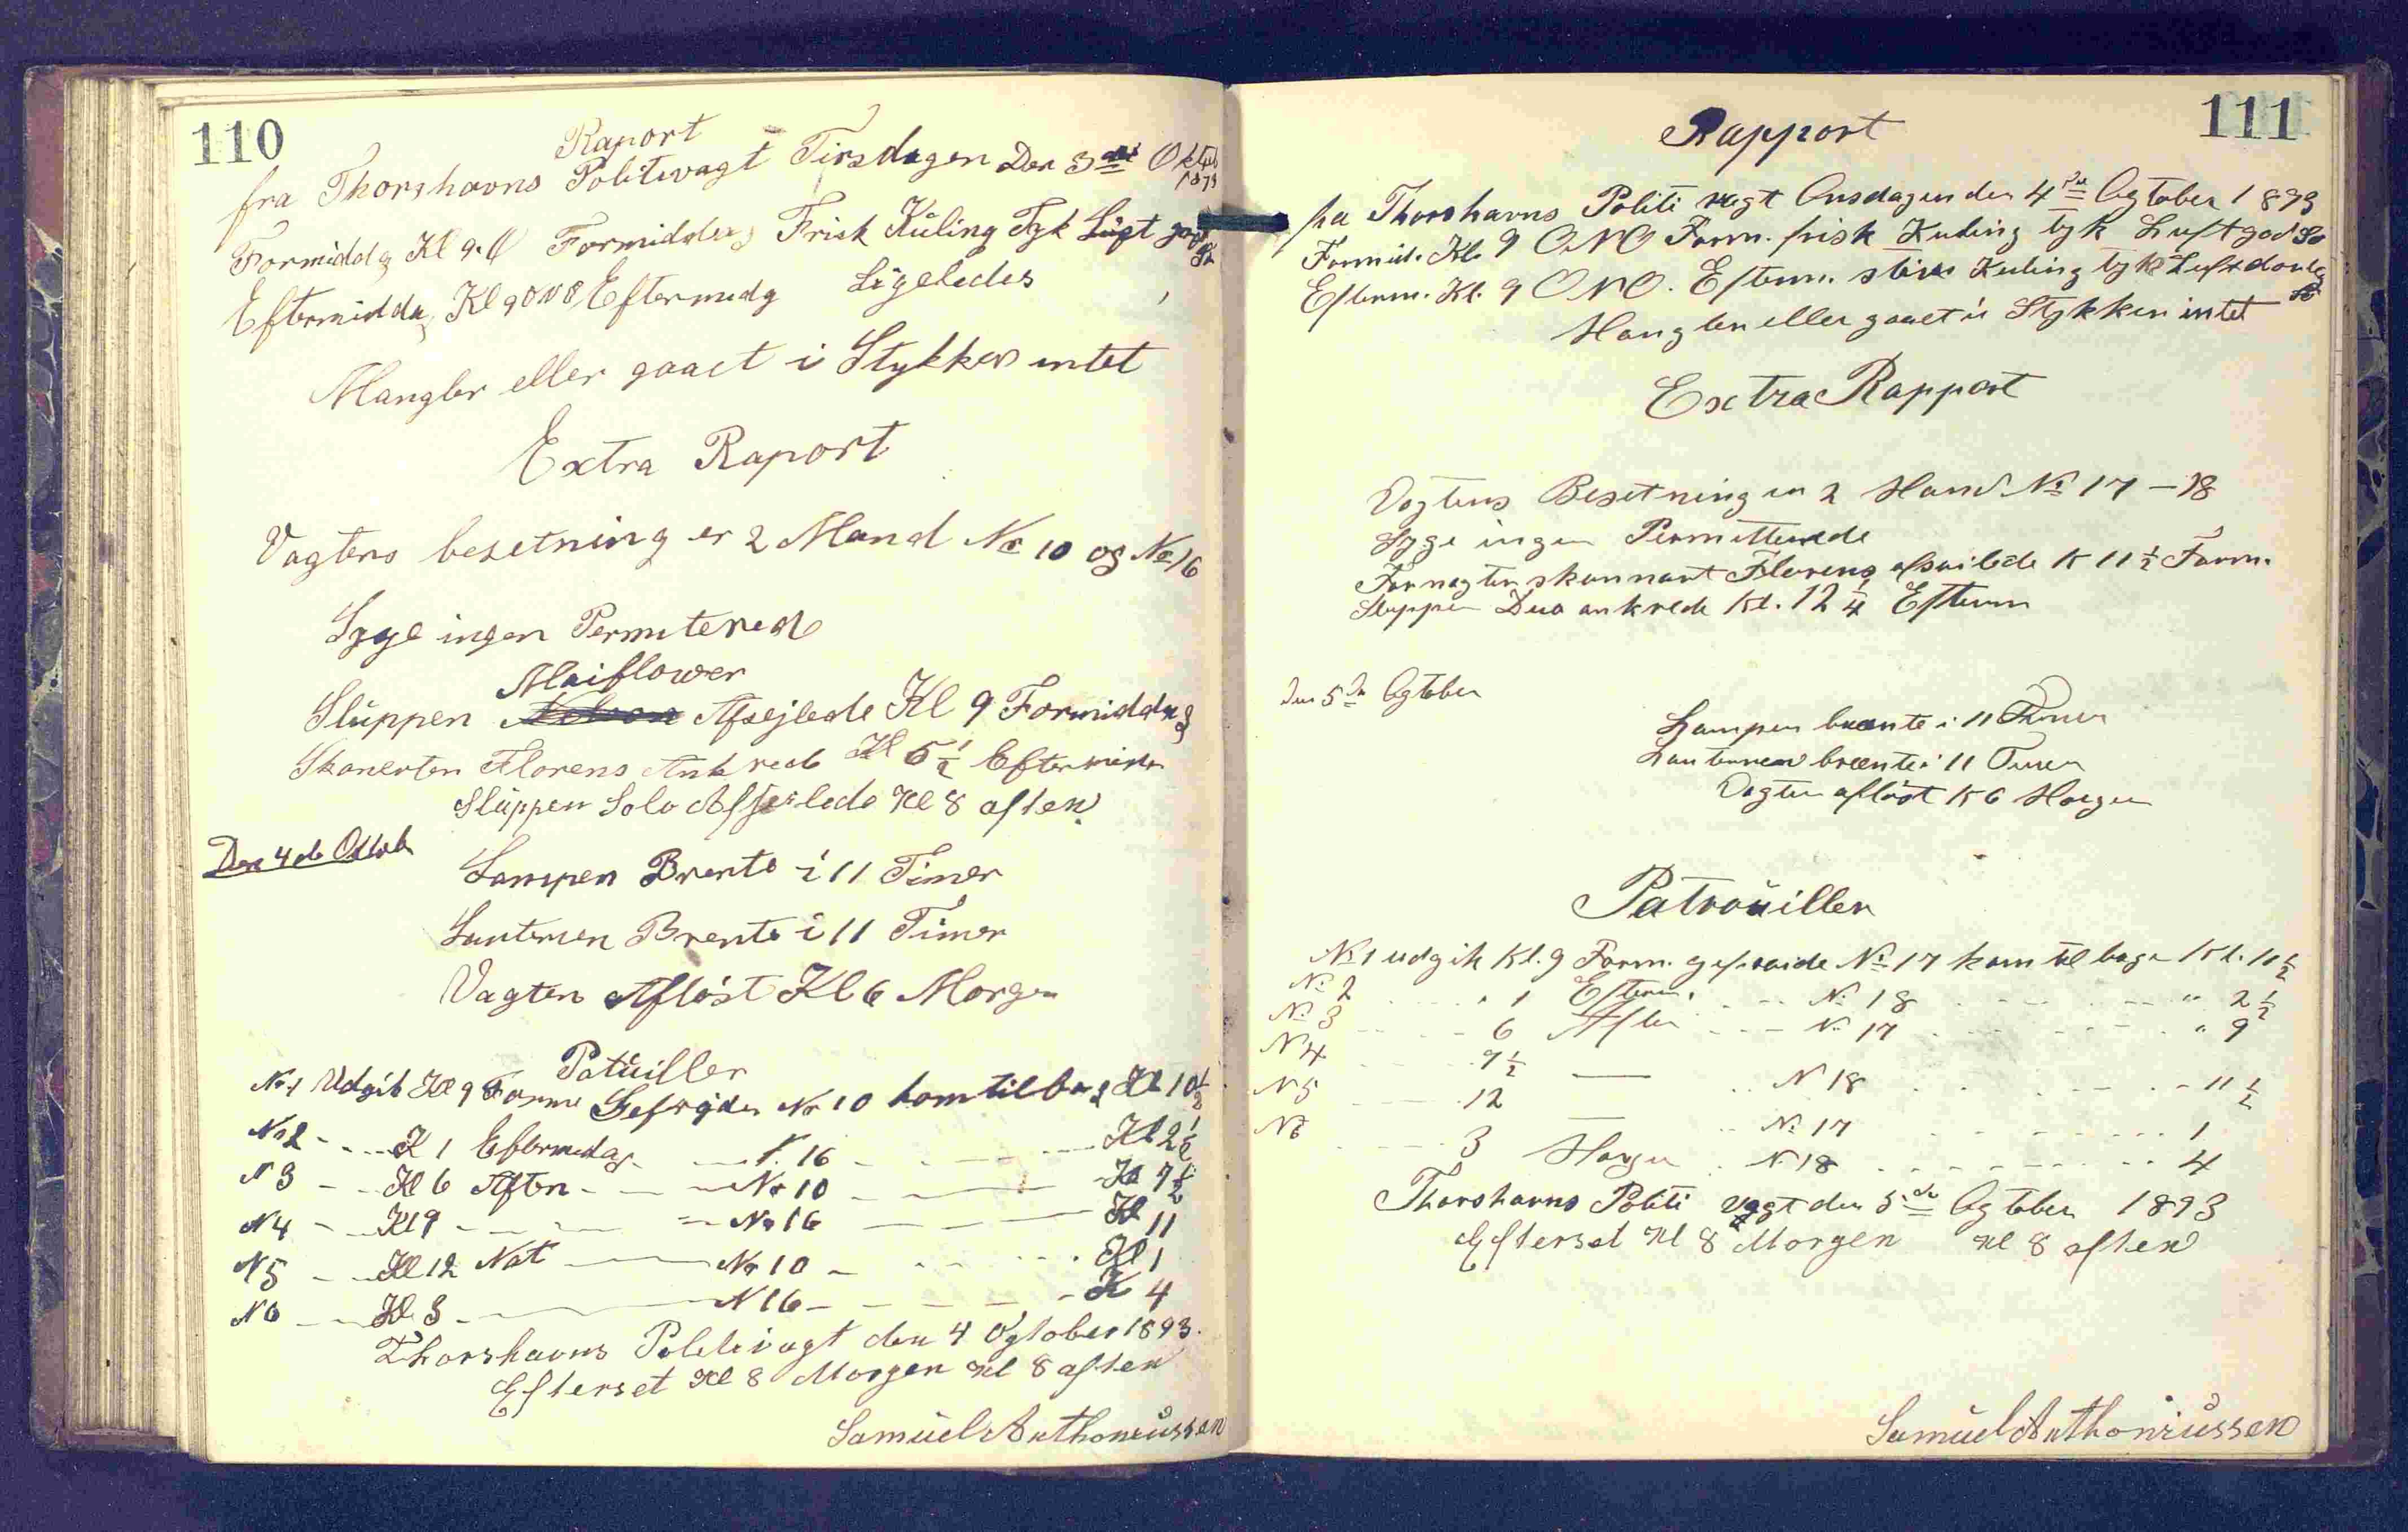 110
Raport
fra Thorshavns Politivagt Tirsdagen Den 3die Oktob
1893
Formiddag Kl 9. O Formiddag Frisk Kuling Tyk Luft god
Sø
Eftermiddag Kl 9 ONO Eftermidg Ligeledes
Mangler eller gaaet i Stykker intet
Extra Raport
Vagtens besetning er 2 Mand No 10 og No 16
Syge ingen Permitered
Maiflower
Sluppen Afsejlede Kl 9 Formiddag
Skonerten Florens Ankrede Kl 5 1/2 Eftermidd
Sluppen Solo Afseilede Kl 8 aften
Den 4de Octob
Lampen Brente i 11 Timer
Lanternen Brente i 11 Timer
Vagten Afløst Kl 6 Morgen
Patuiller
No 1 Udgik Kl 9 Forme Gefrejder No 10 kom tilbag Kl 10 1/2
No 2 - - - Kl 1 Eftermidag - - N. 16 - - - Kl 2 1/2
N 3 - - Kl 6 Aften - - - No 10 - - - Kl 7 1/2
N 4 - Kl 9 - - - No 16 - - - Kl 11
N 5 - - Kl 12 Nat - - No 10 - - - Kl 1
N 6 - - Kl 3 - - N 16 - - - - K 4
Thorshavns Politivagt den 4 Ogtober 1893.
Efterset Kl 8 Morgen Kl 8 aften
Samuel Anthoniussen
111
Rapport
fra Thorshavns Politi vagt Onsdagen den 4de Ogtober 1893
Formid. Kl. 9 ONO Form. frisk Kuling tyk Luft god Sø
Efterm. Kl. 9 ONO. Efterm. stiv Kuling tyk Luft daarlig
Sø
Mangler eller gaaet i Stykker intet
Extra Rapport
Vagtens Besetning er 2 Mand No 17 - 18
Syge ingen Permitterede
Skonnart Florens afseilede K 11 1/2 Form.
Sluppen Duo ankrede Kl. 12 1/4 Efterm
den 5de Ogtober
Lampen brænte i 11 Timer
Lanternen brænte i 11 Timer
Vagten afløst K 6 Morgen
Patrouiller
No 1 udgik Kl. 9 Form. gefraide No 17 kom tilbage Kl. 10 1/2
No 2 . . . . . 1 Efterm. . - - No 18 - - - " 2 1/2
No 3 - - - 6 Aften - - - No 17 . . . . " 9
N 4 . . . . 9 1/2 — . . N 18 . . . . - 11 1/2
N 5 - - - 12 — - - No 17 - - - - 1
N 6 - - - 3 Morgen . No 18 - - - - 4
Thorshavns Politi vagt den 5de Ogtober 1893
Efterset Kl 8 Morgen Kl 8 aften
Samuel Anthoniussen